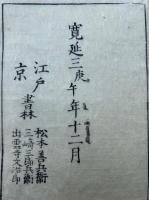 寛延三庚午年十二月
江戸書林 松本善兵衛
三崎三郎兵衛
京 出雲寺文治郎